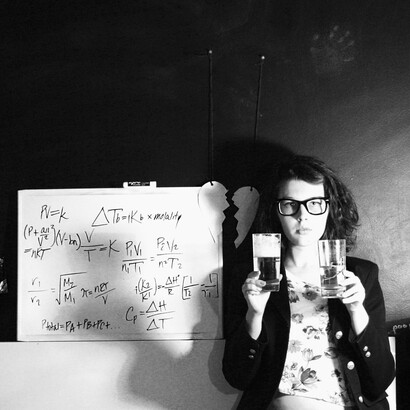 PV=K
ΔTb=iKb x molality
(P+an²/V²)(V-bn)=nRT
V/T=K
P1V1/n1T1 = P2V2/n2T2
r1/r2 = √M2/M1
π=nRT/V
ln(K2/K1)=ΔH°/R[1/T2 - 1/T1]
Cp=ΔH/ΔT
=PA+PB+PC+...